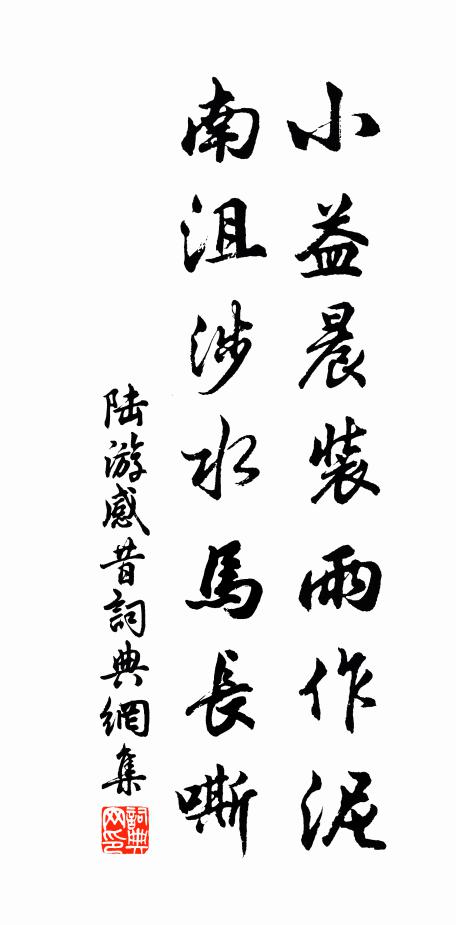 小益晨裝雨作泥
南沮涉水馬長嘶
陸游感昔詞典網集
詞典網印